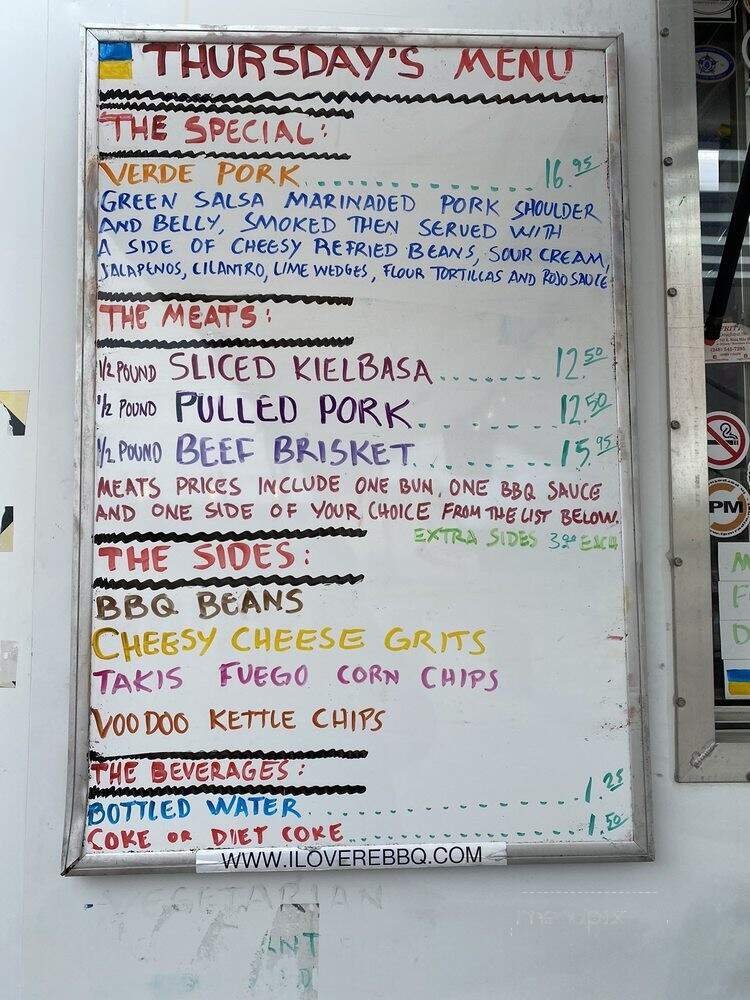 THURSDAY'S MENU
THE SPECIAL:
VERDE PORK................16.95
GREEN SALSA MARINADED PORK SHOULDER
AND BELLY, SMOKED THEN SERVED WITH
A SIDE OF CHEESY REFRIED BEANS, SOUR CREAM,
JALAPENOS, CILANTRO, LIME WEDGES, FLOUR TORTILLAS AND ROJO SAUCE
THE MEATS:
1/2 POUND SLICED KIELBASA.......12.50
1/2 POUND PULLED PORK.........12.50
1/2 POUND BEEF BRISKET.........15.95
MEATS PRICES INCLUDE ONE BUN, ONE BBQ SAUCE
AND ONE SIDE OF YOUR CHOICE FROM THE LIST BELOW.
EXTRA SIDES 3.00 EACH
THE SIDES:
BBQ BEANS
CHEESY CHEESE GRITS
TAKIS FUEGO CORN CHIPS
VOODOO KETTLE CHIPS
THE BEVERAGES:
BOTTLED WATER................1.25
COKE OR DIET COKE................1.50
WWW.ILOVEREBBQ.COM
VEGETARIAN
PM
M
F
D
menupix